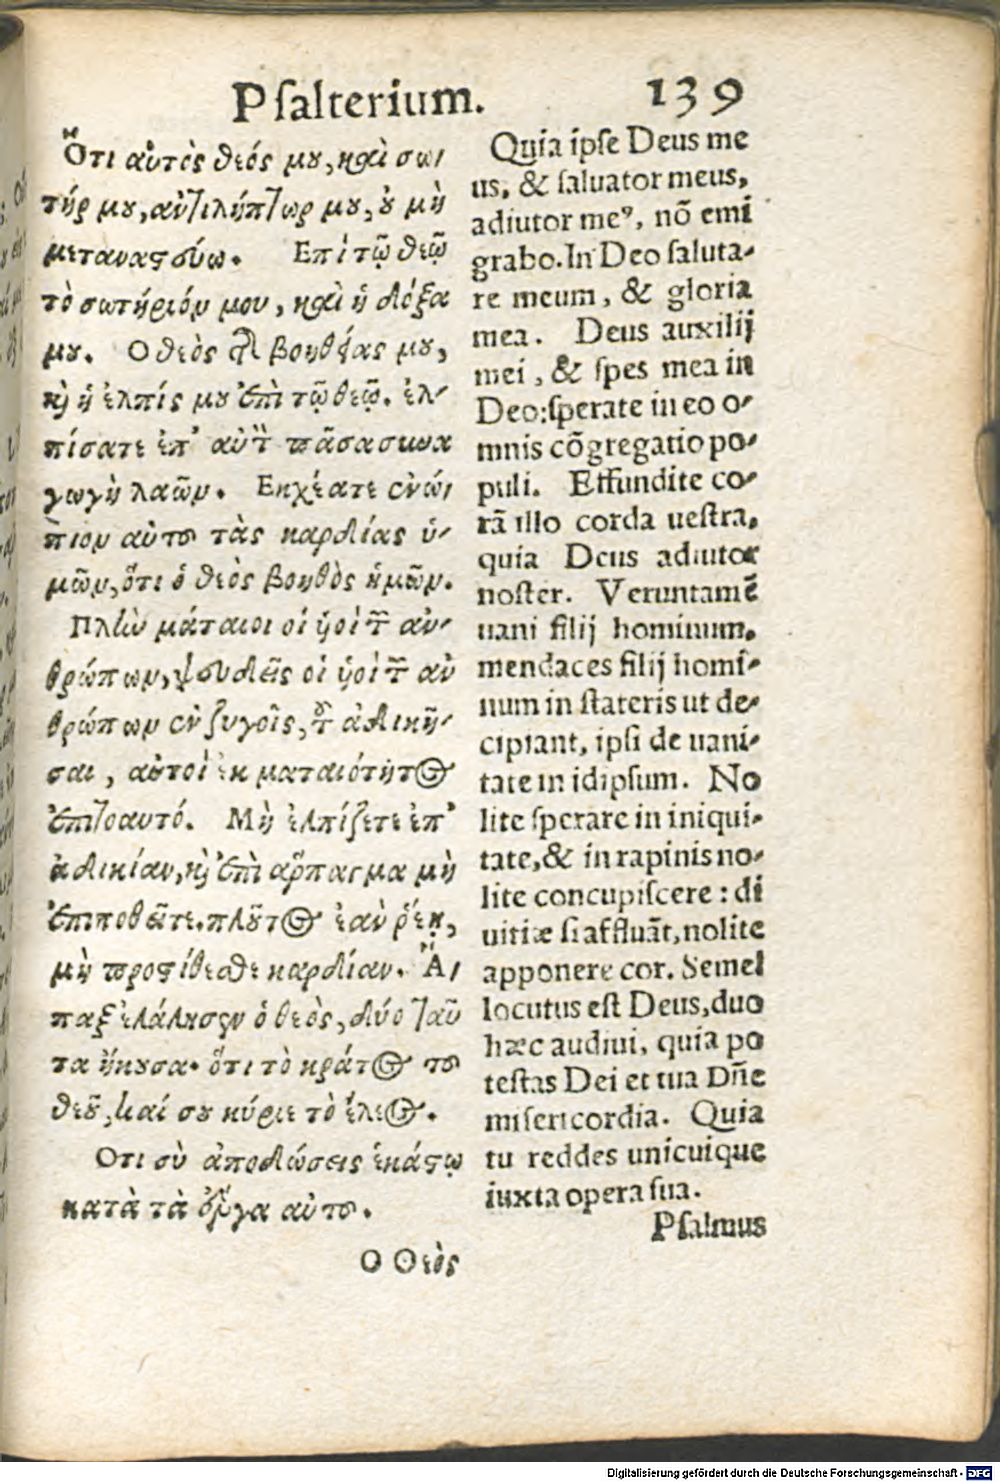 Psalterium. 139
Ὅτι αὐτὸς θεός μȣ, καὶ σω-
τήρ μȣ, ἀντιλήπτωρ μȣ, ȣ μὴ
μεταναστεύω. Επὶ τῷ θεῷ
τὸ σωτήριόν μου, καὶ ἡ δόξα
μȣ. Ο θεὸς τῆς βοηθείας μȣ,
κὶ ἡ ἐλπίς μȣ ἐπὶ τῷ θεῷ. ἐλ-
πίσατε ἐπ' αὐτὸν πᾶσα συνα
γωγὴ λαῶν. Εκχέατε ἐνώ-
πιον αὐτοῦ τὰς καρδίας ὑ-
μῶν, ὅτι ὁ θεὸς βοηθὸς ἡμῶν.
Πλὴν μάταιοι οἱ ὑοὶ τῶν ἀν-
θρώπων, ψευδεῖς οἱ ὑοὶ τῶν ἀν
θρώπων ἐν ζυγοῖς, τοῦ ἀδικῆ-
σαι, αὐτοὶ ἐκ ματαιότητος
ἐπιτοαυτό. Μὴ ἐλπίζετε ἐπ'
ἀδικίαν, κὶ ἐπὶ ἅρπαγμα μὴ
ἐπιποθεῖτε. πλȣτος ἐὰν ῥέῃ,
μὴ προστίθεσθε καρδίαν. Ἅ-
παξ ἐλάλησεν ὁ θεὸς, δύο ταῦ
τα ἤκȣσα. ὅτι τὸ κράτος τοῦ
θεȣ, καί σȣ κύριε τὸ ἔλεος.
Οτι σὺ ἀποδώσεις ἑκάστῳ
κατὰ τὰ ἔργα αὐτοῦ.
Ο Θεὸς
Quia ipse Deus me
us, & saluator meus,
adiutor meꝰ, nõ emi
grabo. In Deo saluta-
re meum, & gloria
mea. Deus auxilij
mei, & spes mea in
Deo: sperate in eo o-
mnis cõgregatio po-
puli. Effundite co-
rã illo corda uestra,
quia Deus adiutor
noster. Veruntamẽ
uani filij hominum,
mendaces filij homi-
num in stateris ut de-
cipiant, ipsi de uani-
tate in idipsum. No
lite sperare in iniqui-
tate, & in rapinis no-
lite concupiscere: di
uitiæ si affluãt, nolite
apponere cor. Semel
locutus est Deus, duo
hæc audiui, quia po
testas Dei et tua Dñe
misericordia. Quia
tu reddes unicuique
iuxta opera sua.
Psalmus
Digitalisierung gefördert durch die Deutsche Forschungsgemeinschaft - DFG